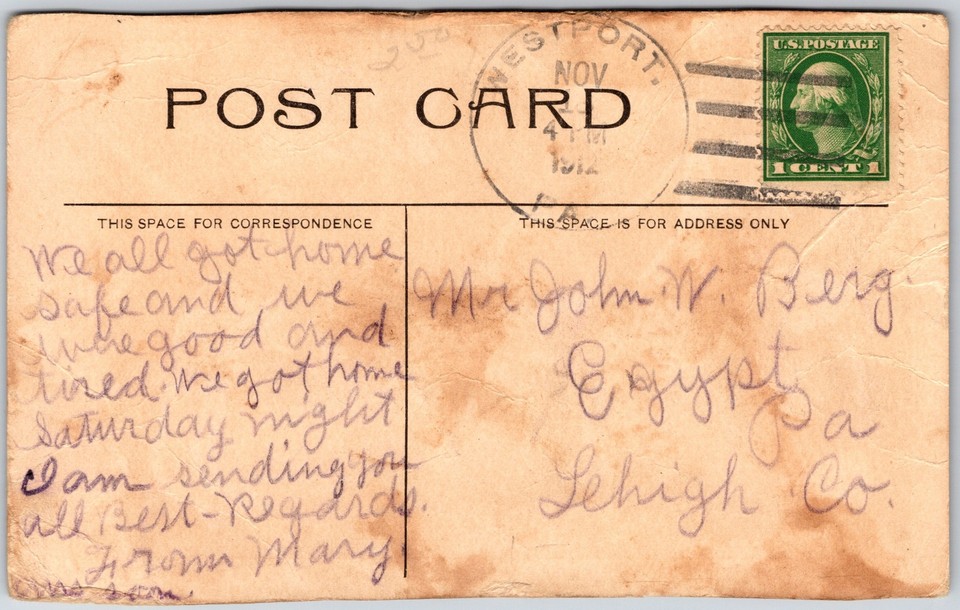 200
WESTPORT,
NOV
4 PM
1912
PA.
U.S. POSTAGE
1 CENT 1
POST CARD
THIS SPACE FOR CORRESPONDENCE
THIS SPACE IS FOR ADDRESS ONLY
We all got home
safe and we
were good and
tired. We got home
Saturday night
I am sending you
all Best-Regards.
From Mary
Mr John W. Berg
Egypt
Pa
Lehigh Co.